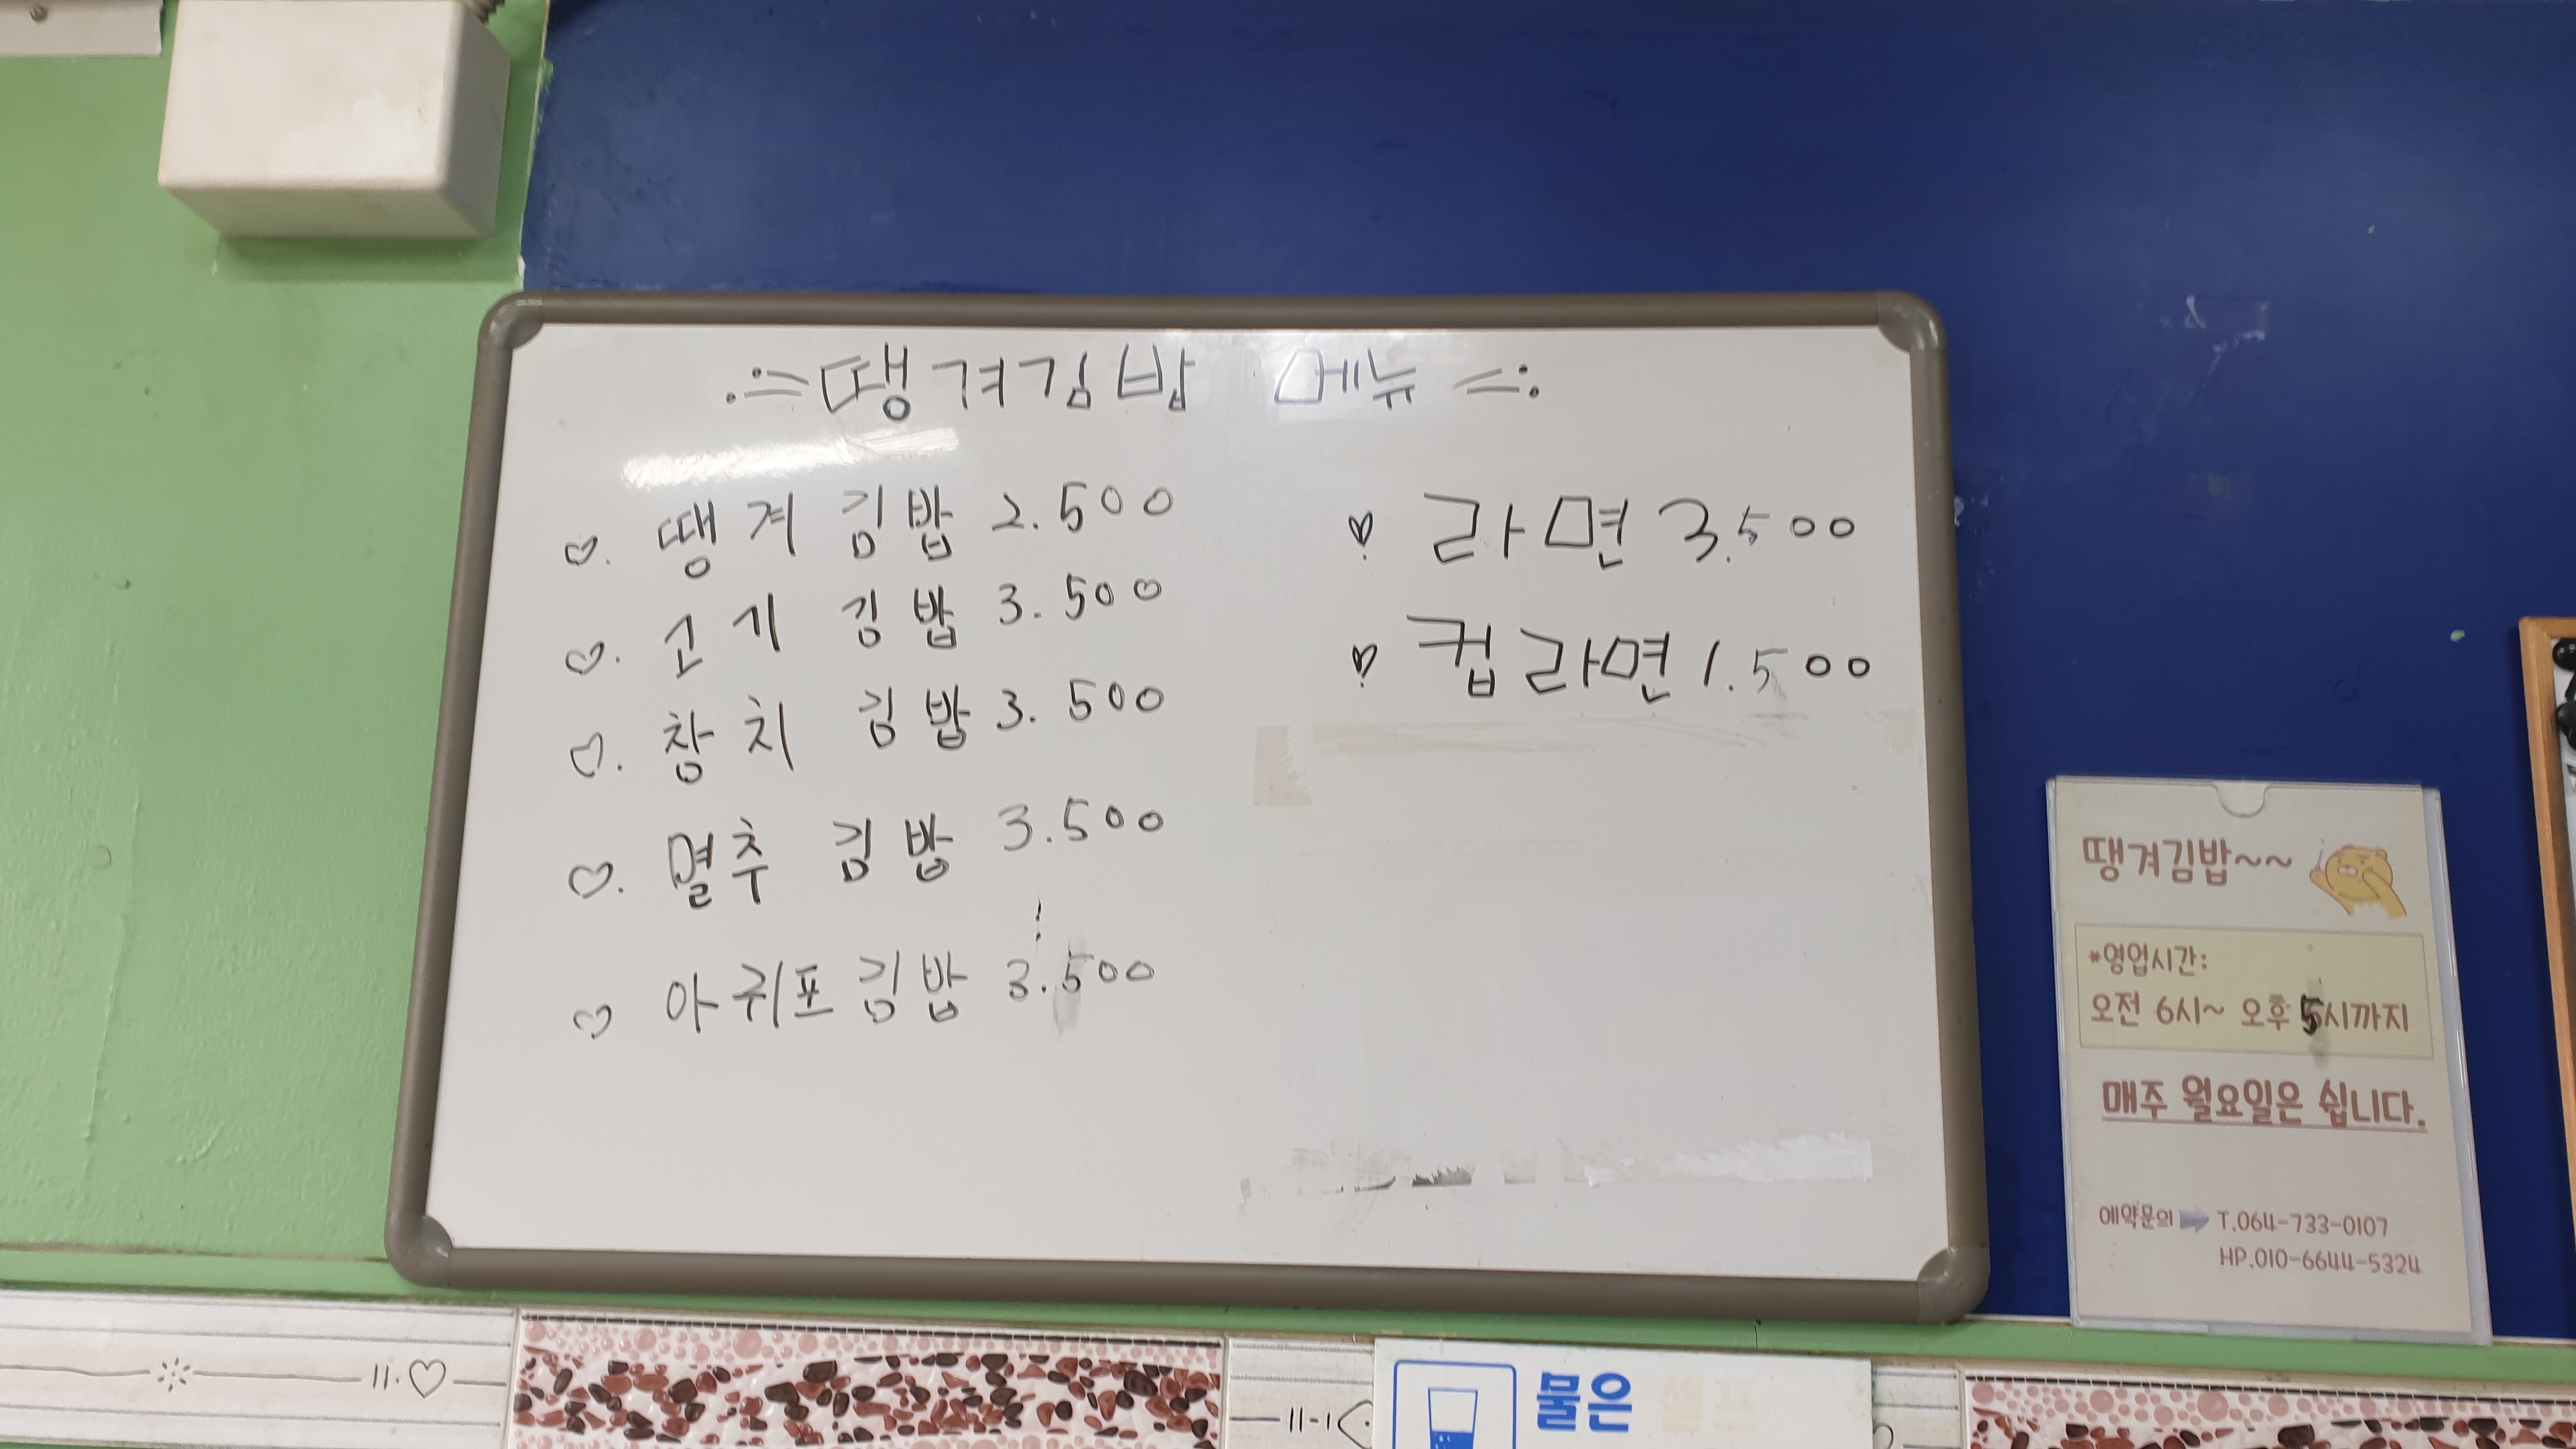 땡겨김밥 메뉴
♡. 땡겨 김밥 2.500
♡. 고기 김밥 3.500
♡. 창치 김밥 3.500
♡. 멸추 김밥 3.500
♡ 아귀포김밥 3.500
♡ 라면 3.500
♡ 컵라면 1.500
땡겨김밥~~
*영업시간:
오전 6시~ 오후 5시까지
매주 월요일은 쉽니다.
예약문의 T.064-733-0107
HP.010-6644-5324
11.♡
11-1
물은 셀프